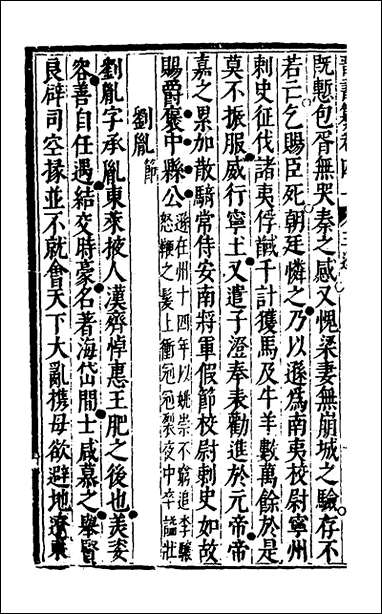 晉書纂卷四十 王遜
既慙包胥無哭秦之感又愧梁妻無崩城之驗存不
若亡乞賜臣死朝廷憐之乃以遜為南夷校尉寧州
刺史征伐諸夷俘馘千計獲馬及牛羊數萬餘於是
莫不振服威行寧土又遣子澄奉表勸進於元帝帝
嘉之累加散騎常侍安南將軍假節校尉刺史如故
賜爵褒中縣公遜在州十四年以姚崇不窮追李驤
怒鞭之髮上衝冠冠裂夜中卒謚壯
劉胤節
劉胤字承胤東萊掖人漢齊悼惠王肥之後也美姿
容善自任遇結交時豪名著海岱間士咸慕之舉賢
良辟司空掾並不就會天下大亂攜母欲避地遼東